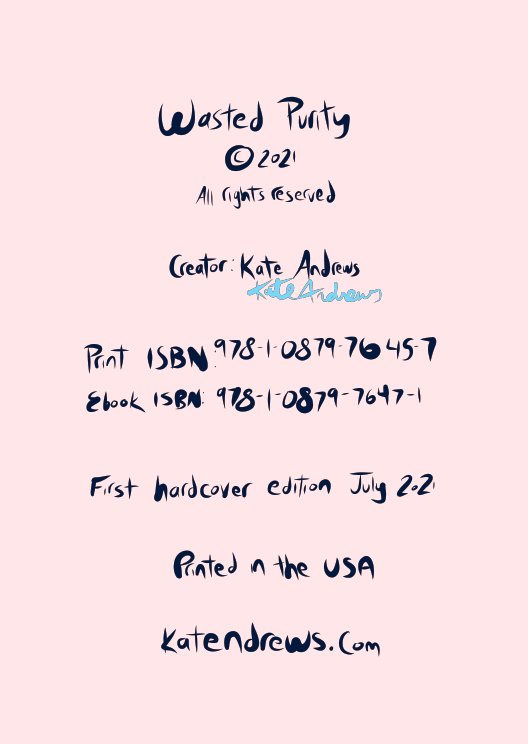 Wasted Purity
© 2021
All rights reserved
Creator: Kate Andrews
Kate Andrews
Print ISBN: 978-1-0879-7645-7
Ebook ISBN: 978-1-0879-7647-1
First hardcover edition July 2021
Printed in the USA
Katendrews.com